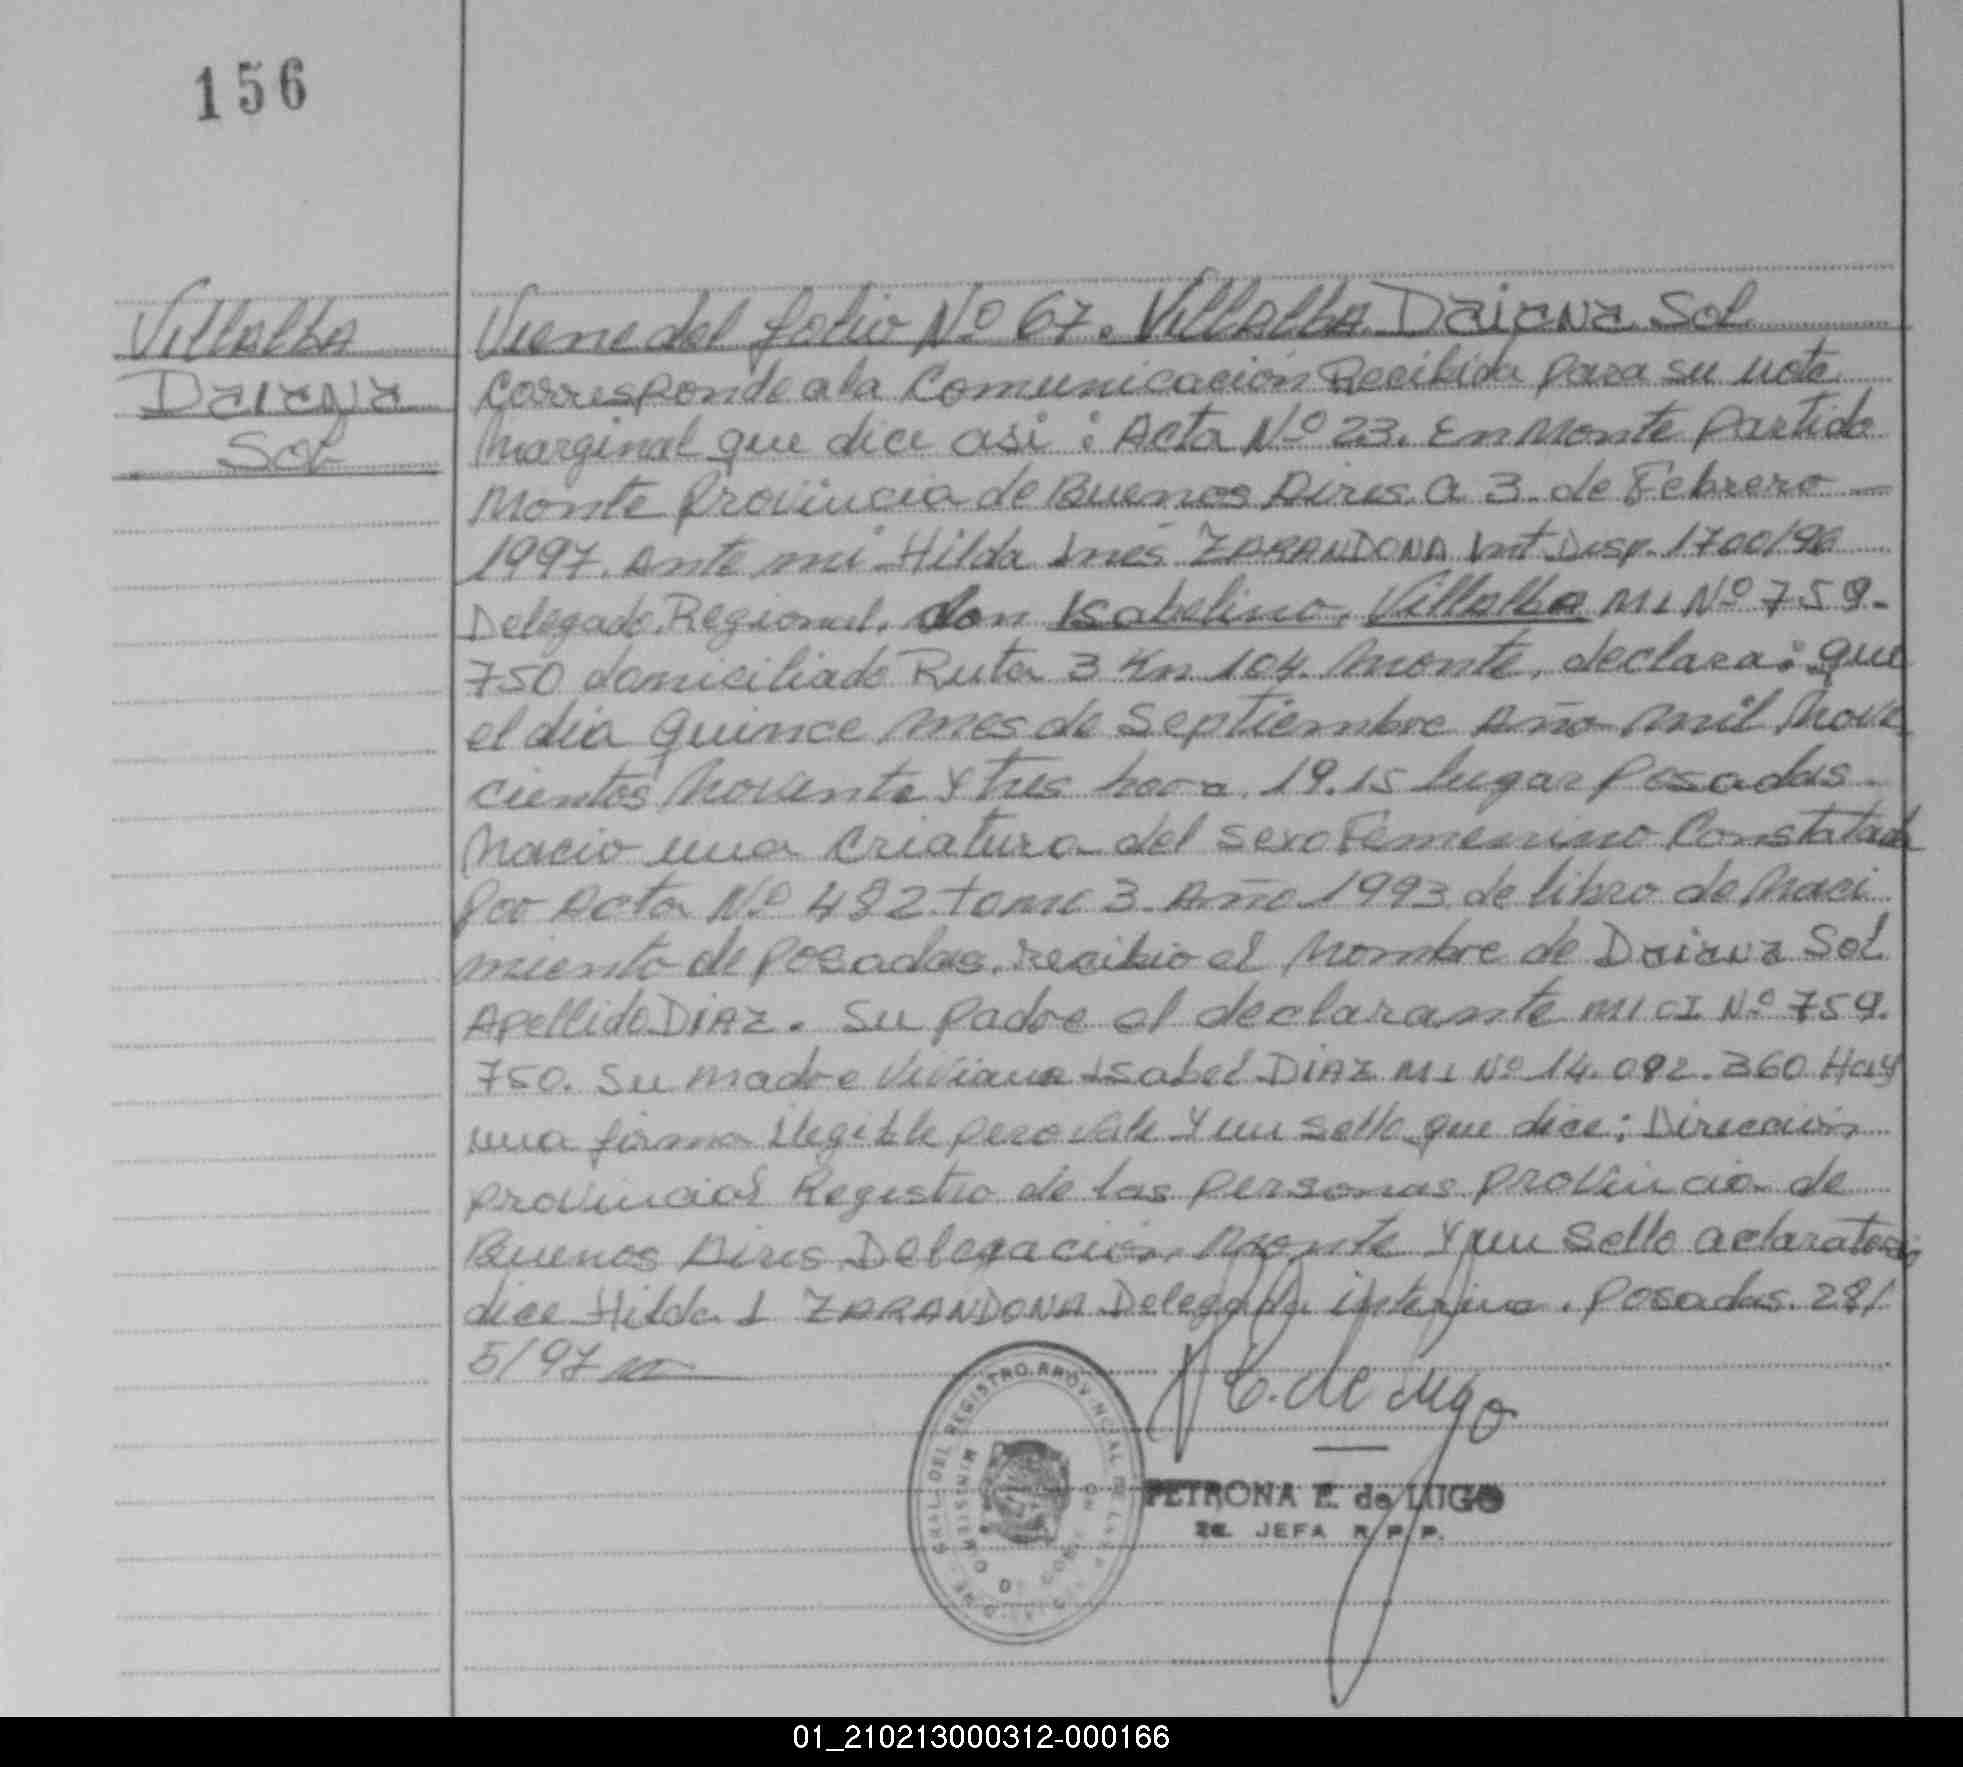 156
Villalba
Daiana
Sol
Viene del folio Nº 67. Villalba Daiana Sol
Corresponde a la Comunicación Recibida para su nota
Marginal que dice asi: Acta Nº 23. En Monte Partido
Monte Provincia de Buenos Aires a 3 de Febrero
1997. Ante mi Hilda Ines ZARANDONA Int Disp. 1700/96
Delegado Regional. don Isabelino. Villalba MI Nº 759.
750 domiciliado Ruta 3 Km 104. Monte. declara: que
el dia quince mes de Septiembre Año mil Nove
cientos Noventa y tres hora 19.15 lugar Posadas
Nacio una Criatura del sexo Femenino Constatada
por Acta Nº 482 tomo 3 Año 1993 de libro de Naci
miento de Posadas. recibio el Nombre de Daiana Sol
Apellido DIAZ. Su padre el declarante MI CI Nº 759.
750. Su madre Viviana Isabel DIAZ MI Nº 14.082.360 Hay
una firma Ilegible pero vale Y un sello que dice: Dirección
Provincial Registro de las personas Provincia de
Buenos Aires Delegación Monte Y un sello aclaratorio
dice Hilda I ZARANDONA Delegada interina. Posadas. 28/
5/97
E. de Lugo
PETRONA E. de LUGO
2a. JEFA R.P.P.
01_210213000312-000166